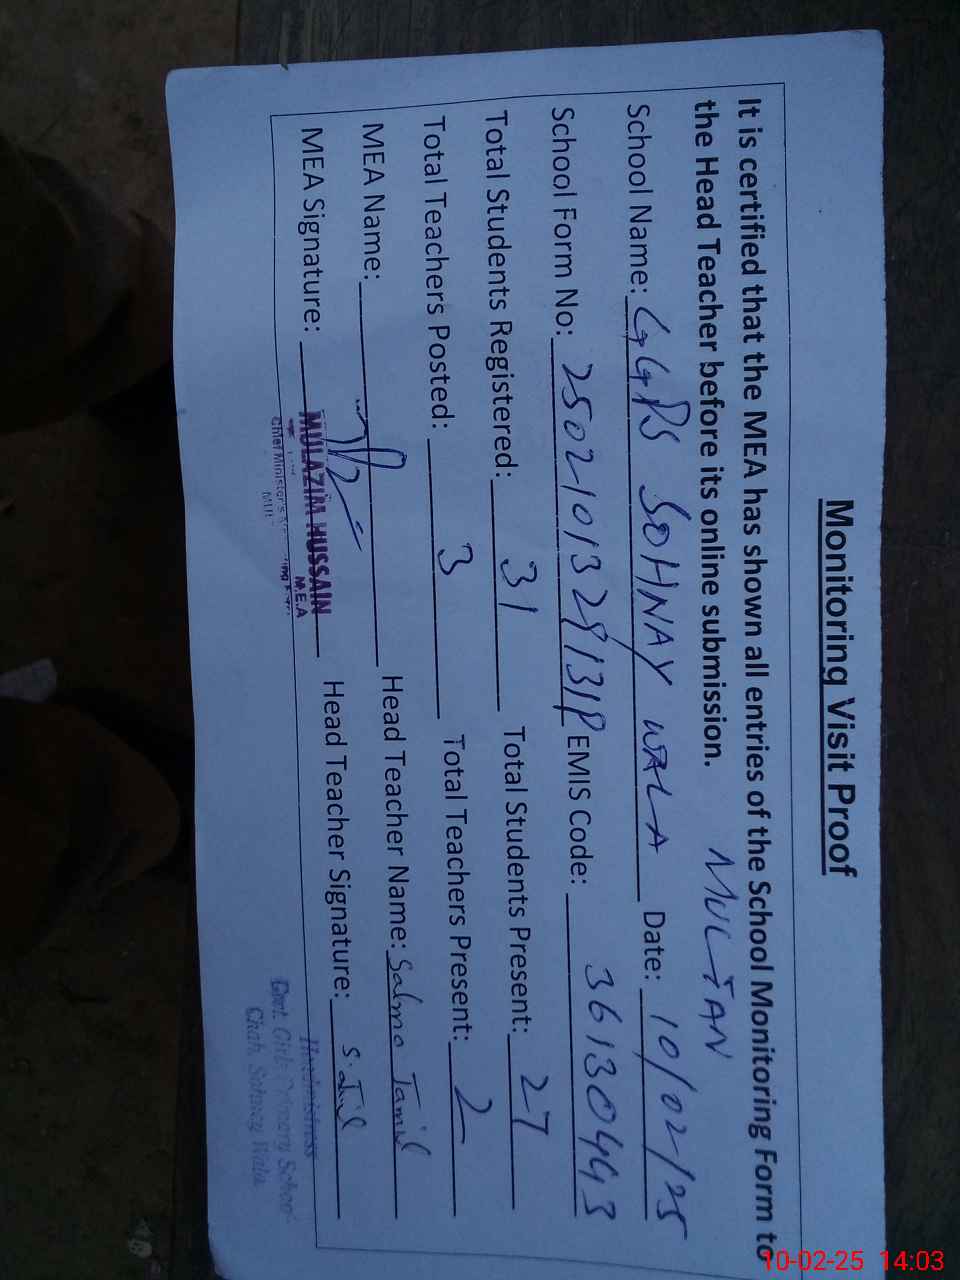 Monitoring Visit Proof
It is certified that the MEA has shown all entries of the School Monitoring Form to
the Head Teacher before its online submission.
MULTAN
School Name: GGPS SOHNAY WALA Date: 10/02/25
School Form No: EMIS Code: 36130443
Total Students Registered: 31 Total Students Present: 27
Total Teachers Posted: 3 Total Teachers Present: 2
MEA Name: Head Teacher Name: Salma Jamil
MEA Signature: Head Teacher Signature: S. Jamil
MULAZIM HUSSAIN
M.E.A
Chief Minister's
Headmistress
Govt. Girls Primary School
Chah Sohnay Wala
10-02-25 14:03